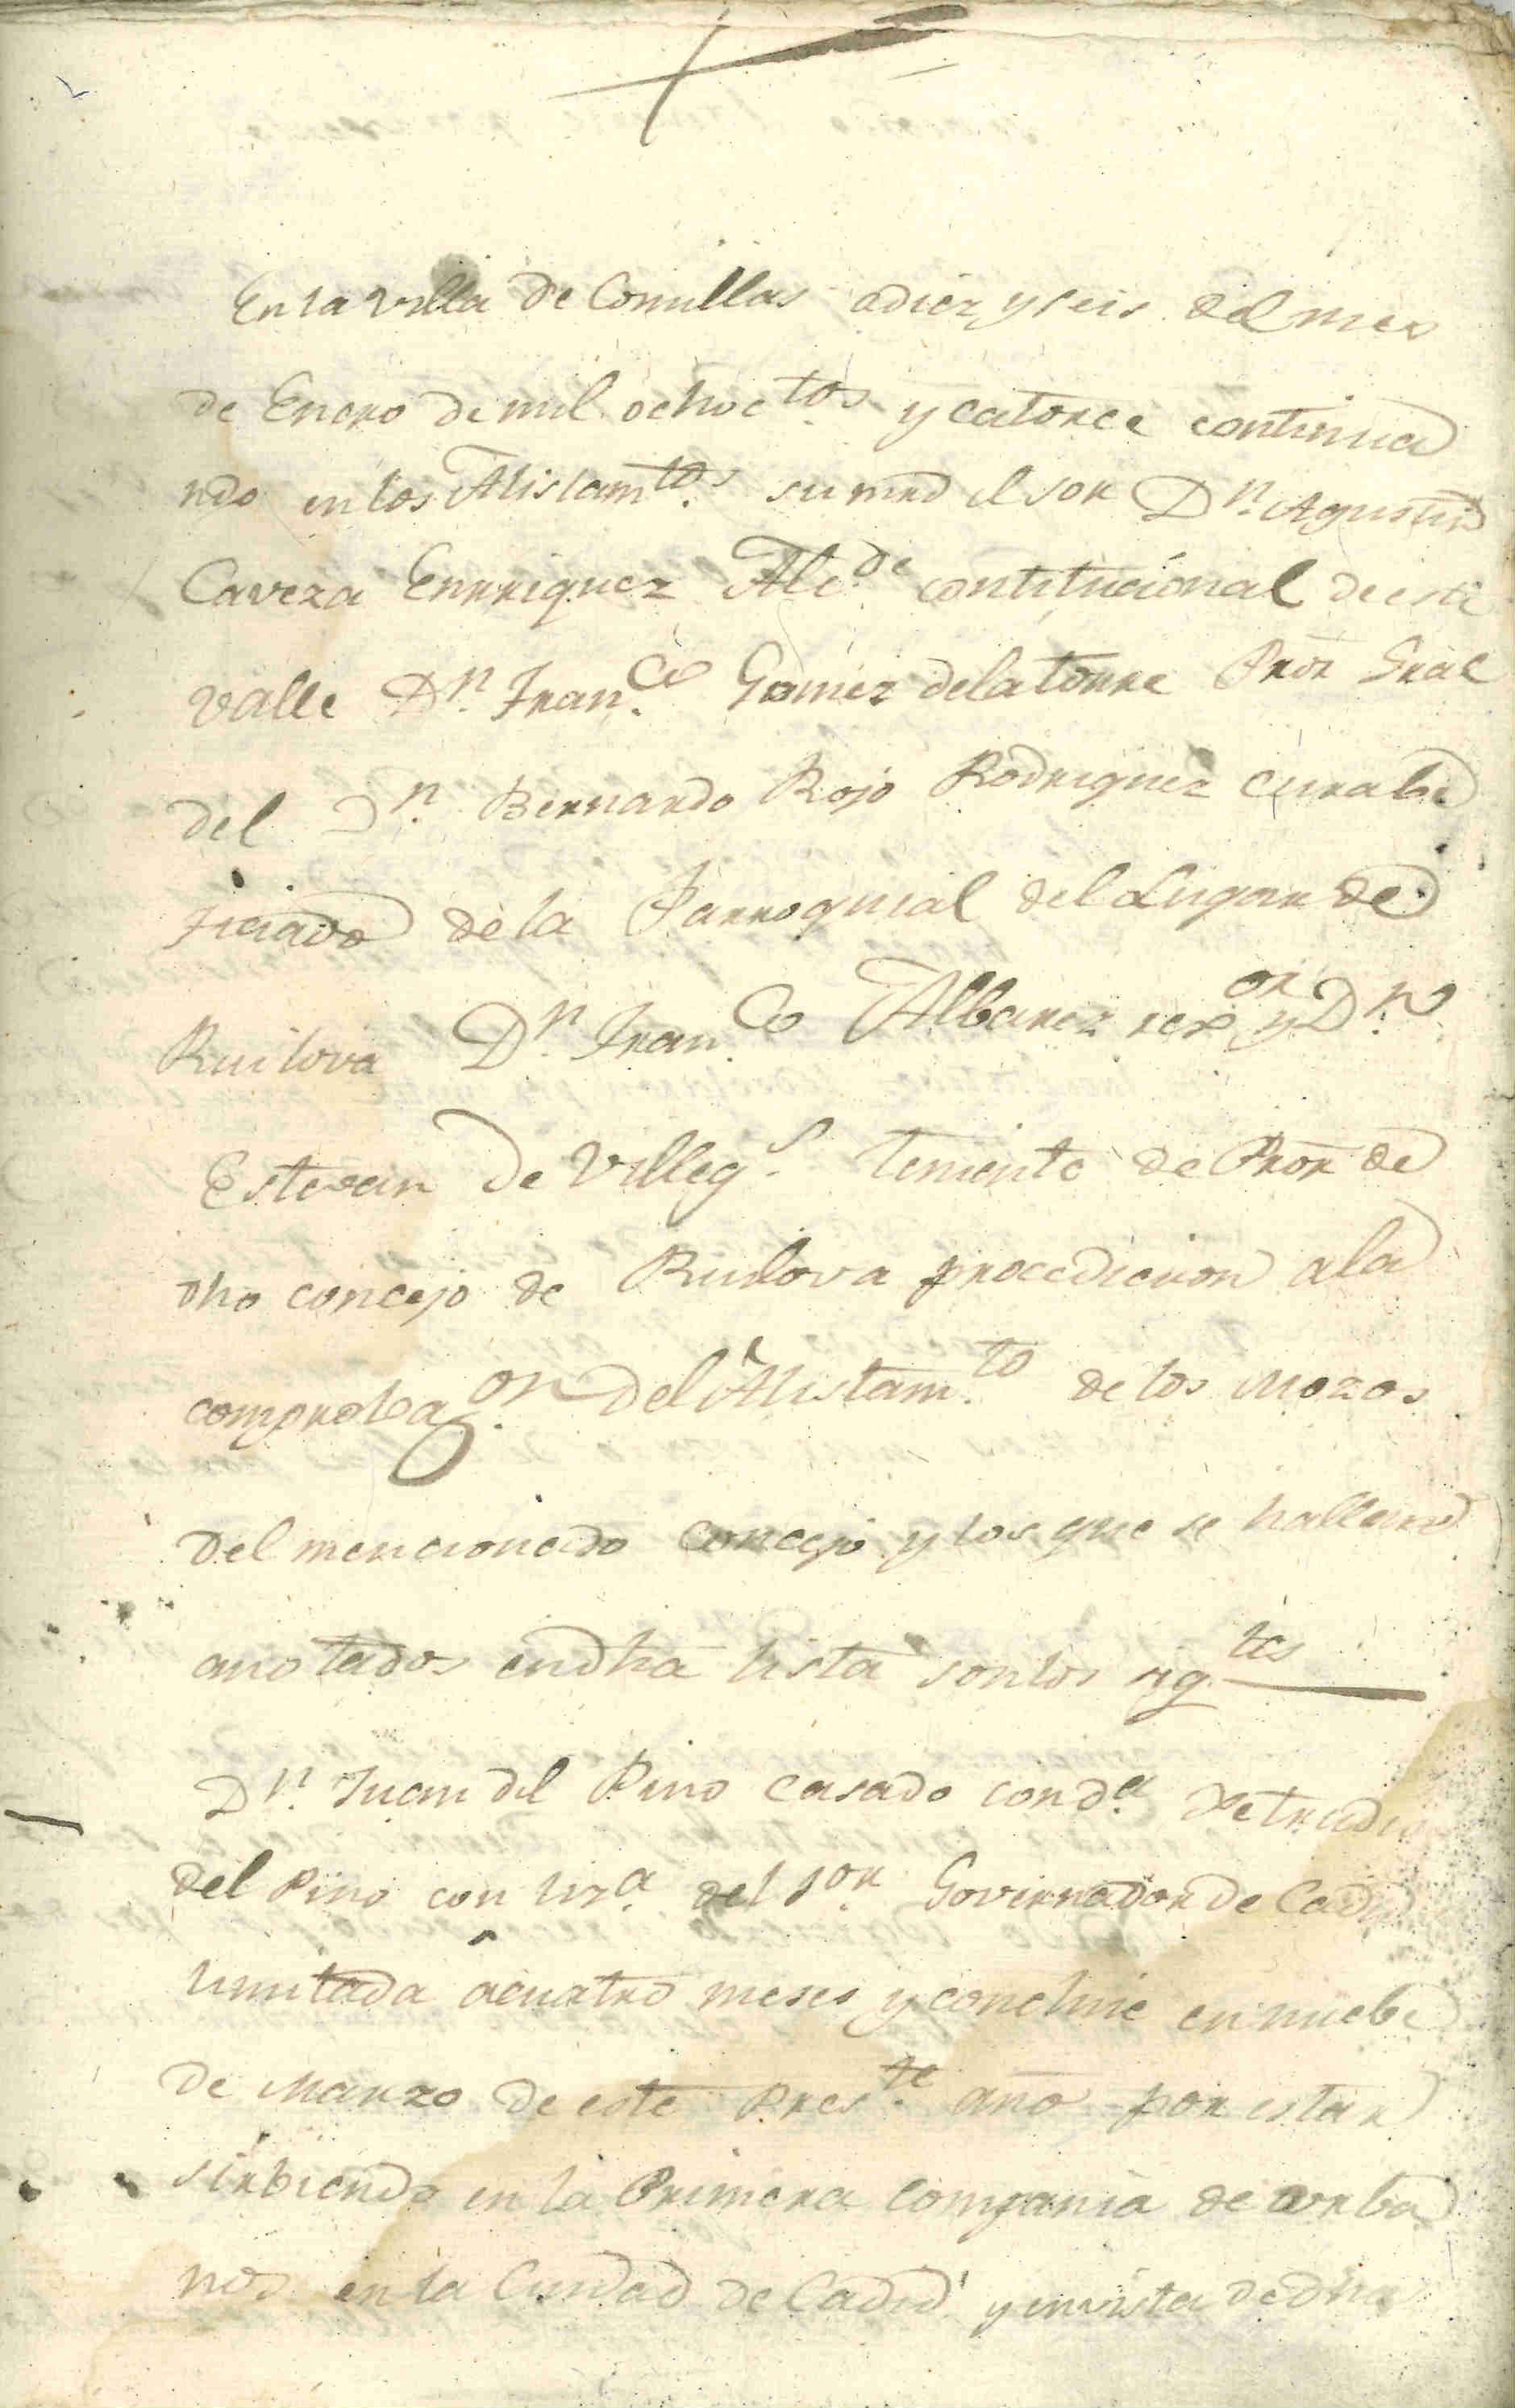 En la Villa de Comillas a diez y seis del mes
de Enero de mil ochoctos. y catorce continua
ndo en los Alistamtos. su mrd el sor Dn. Agustin
Caveza Enrriquez Alcde. contitucional de este
Valle Dn. Franco. Gomez de la torre Pror Gral
del Dn. Bernardo Rojo Rodriguez cura be
ficiado de la Parroquial del Lugar de
Ruilova Dn. Franco. Albarez rexor. y Dn.
Estevan de Villegs. teniente de Pror de
dho concejo de Ruilova procedieron a la
comprobagon. del Alistamto. de los Mozos
del mencionado concejo y los que se hallaron
anotados en dha lista son los sigtes
Dn. Juan del Pino casado con da.
del Pino con liza. del sor. Governador de Cadiz
limitada a cuatro meses y concluie en nuebe
de Marzo de este Preste. año por estar
sirbiendo en la Primera compania de vrba
nos en la Ciudad de Cadid y en vista de dha